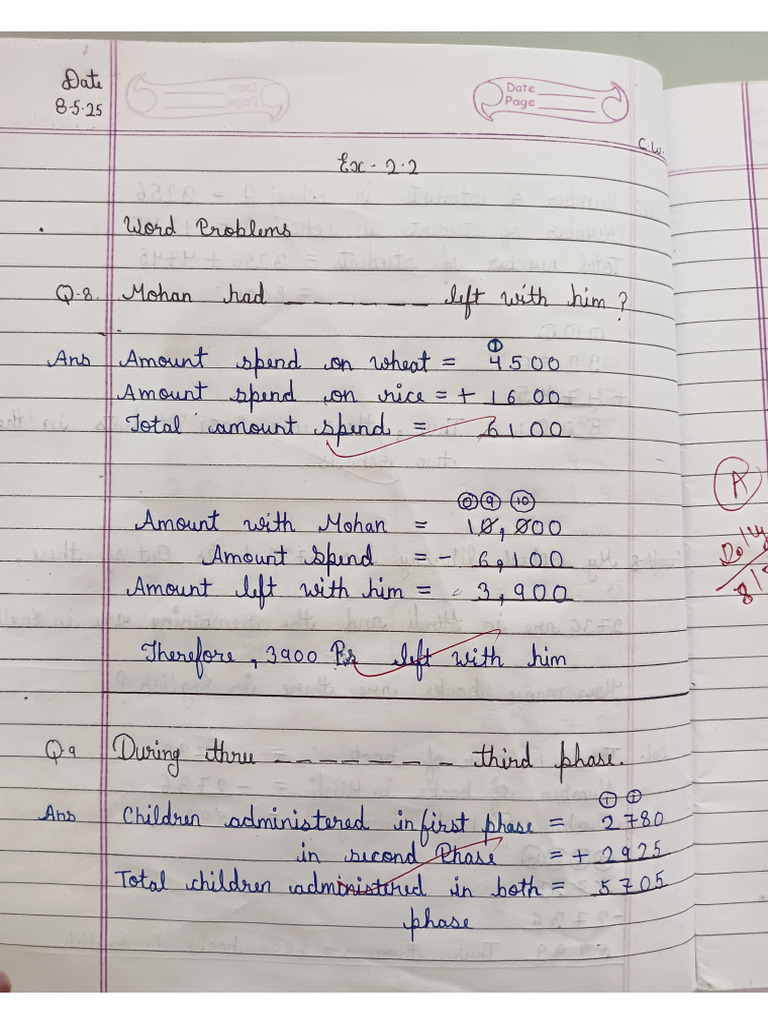 Date
8.5.25
Date
Page
C.W.
Ex - 2.2
Word Problems
Q.8. Mohan had _ _ _ _ _ _ _ left with him?
①
Ans Amount spend on wheat = 4500
Amount spend on rice = + 1600
Total amount spend = 6100
⓪ ⑨ ⑩
Amount with Mohan = 10,000
Amount Spend = - 6,100
Amount left with him = 3,900
A
Therefore, 3900 Rs left with him
Q.9 During three _ _ _ _ _ _ _ third phase.
① ①
Ans Children administered in first phase = 2780
in second Phase = + 2925
Total children administered in both = 5705
phase